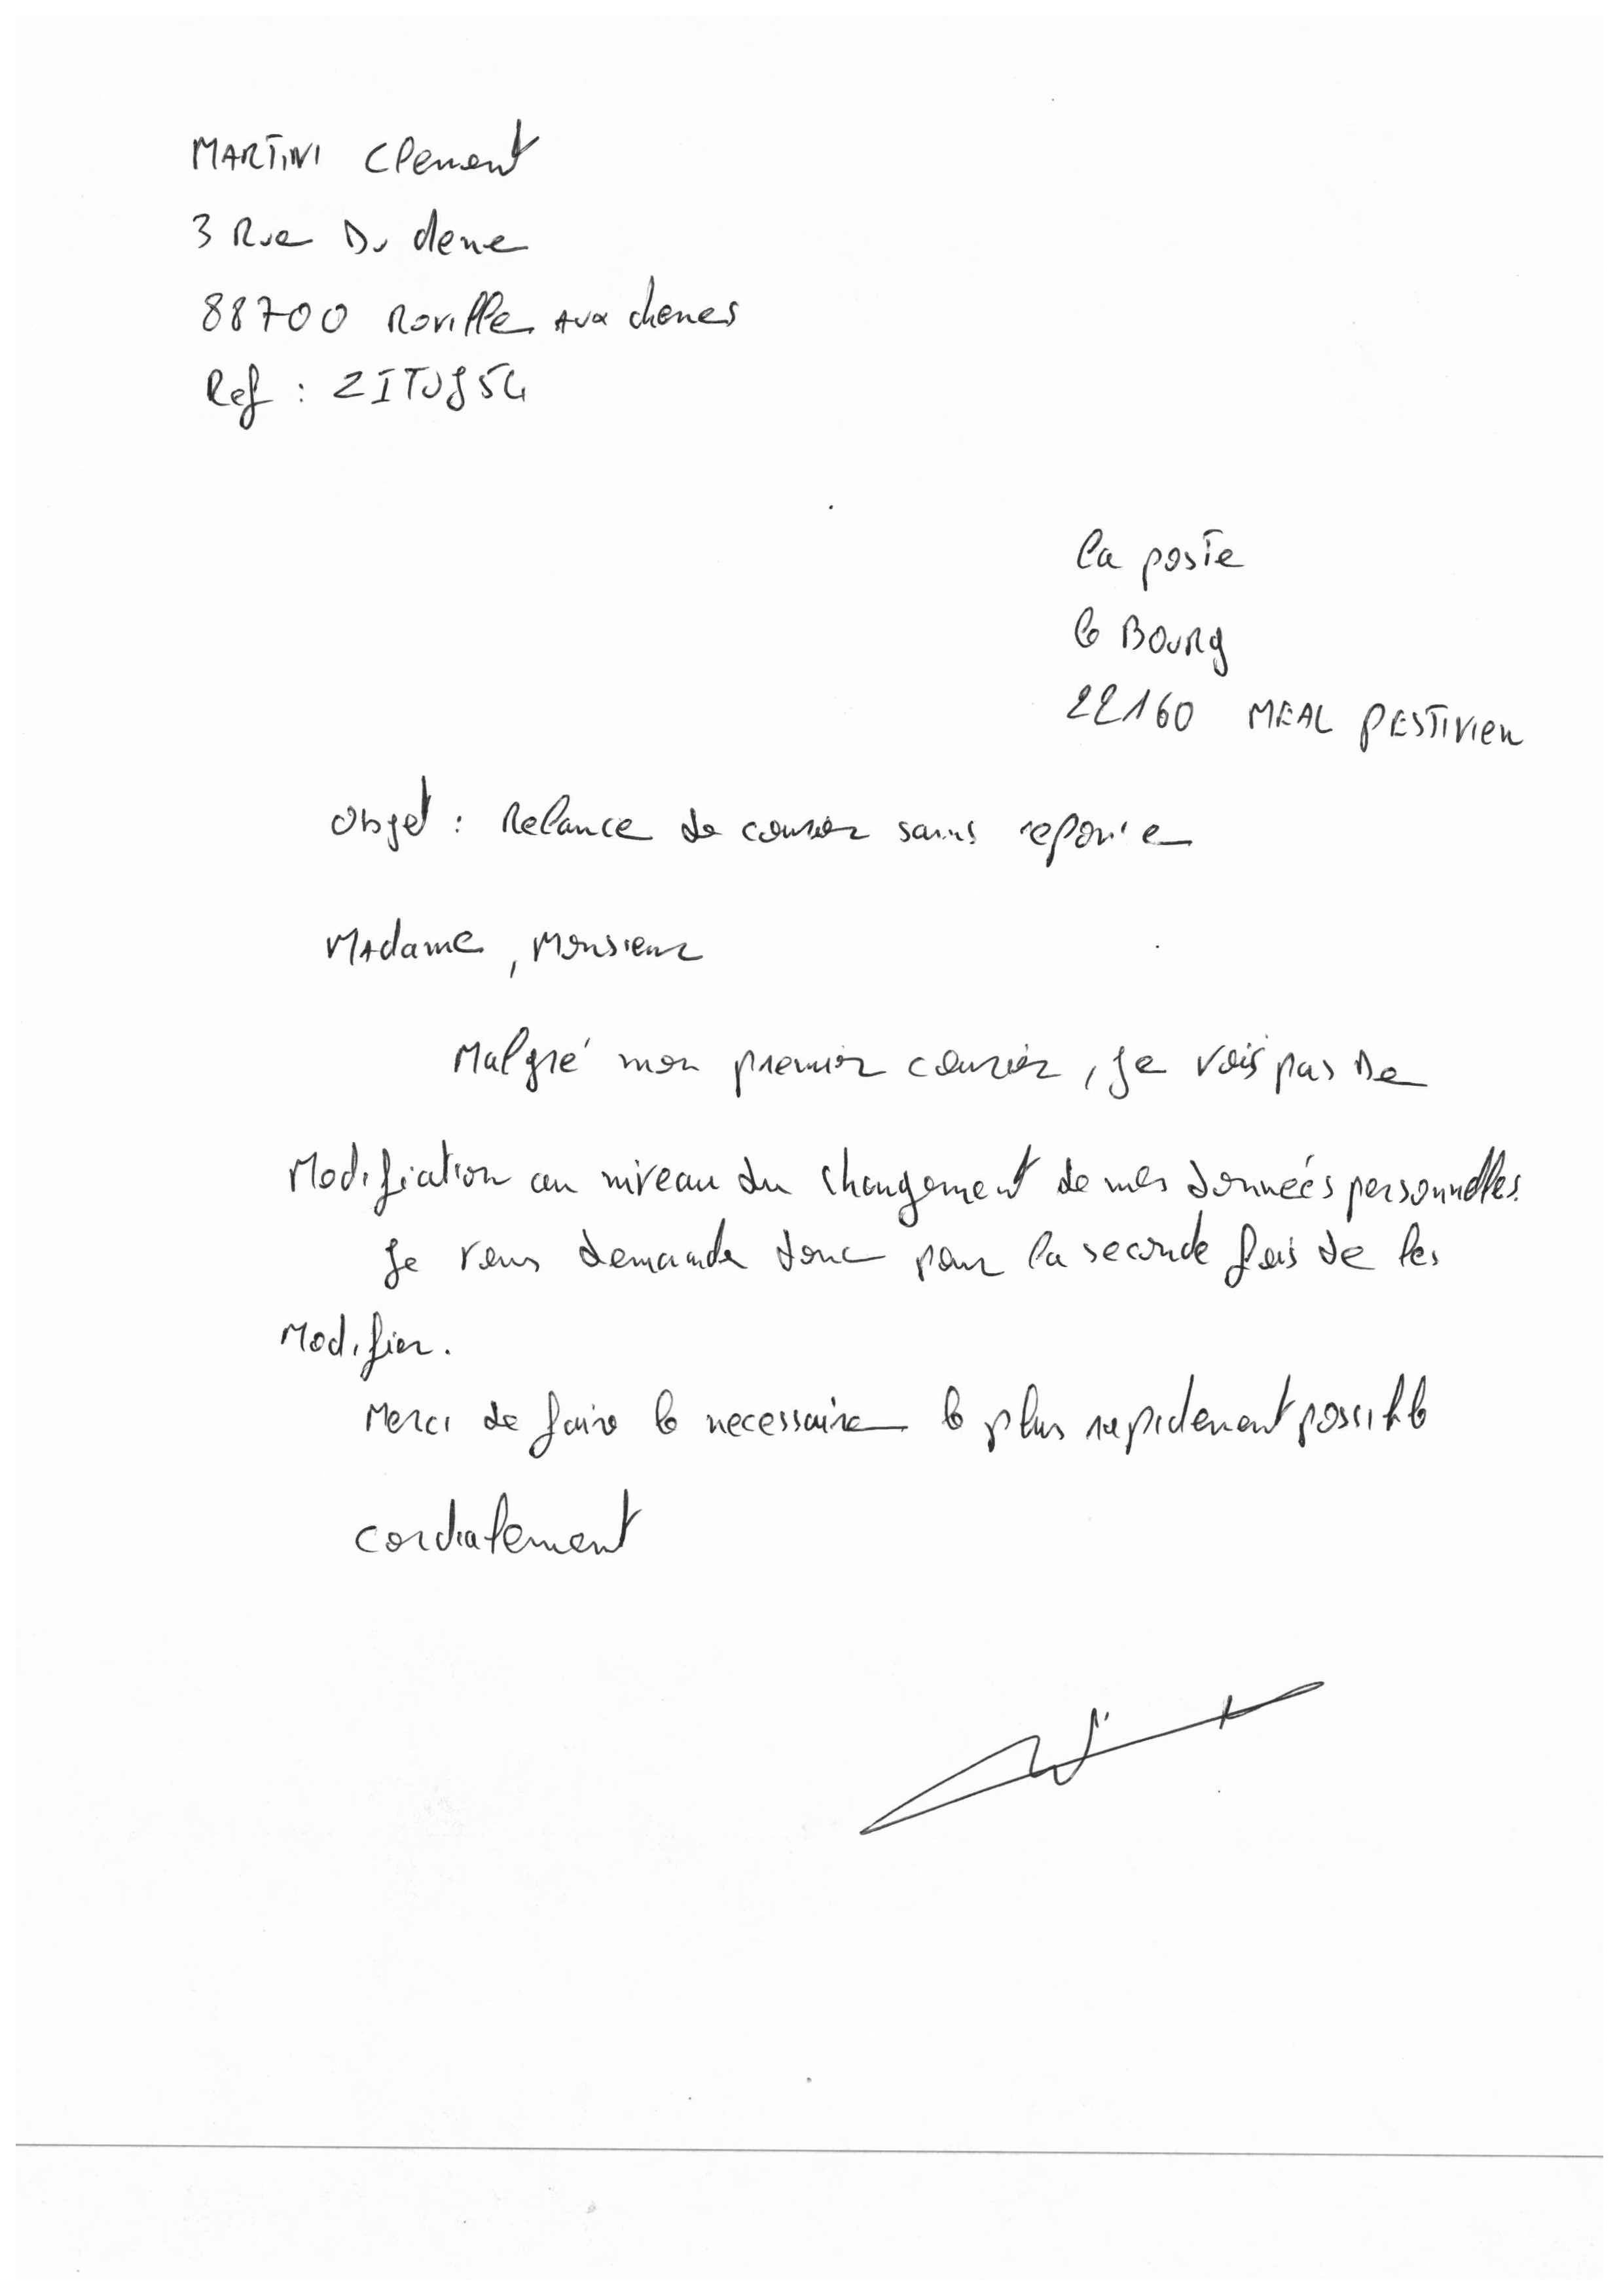 MARTINI Clement
3 Rue Du
88700 Roville aux chenes
Ref :
la poste
le Bourg
22160 MEAL PESTIVIEN
Objet : Relance de courier sans reponse
Madame, Monsieur
Malgré mon premier courier, je vois pas de
Modifiation au niveau du changement de mes données personnelles.
Je vous demande donc pour la seconde fois de les
Modifier.
Merci de faire le necessaire le plus rapidement possible
cordialement